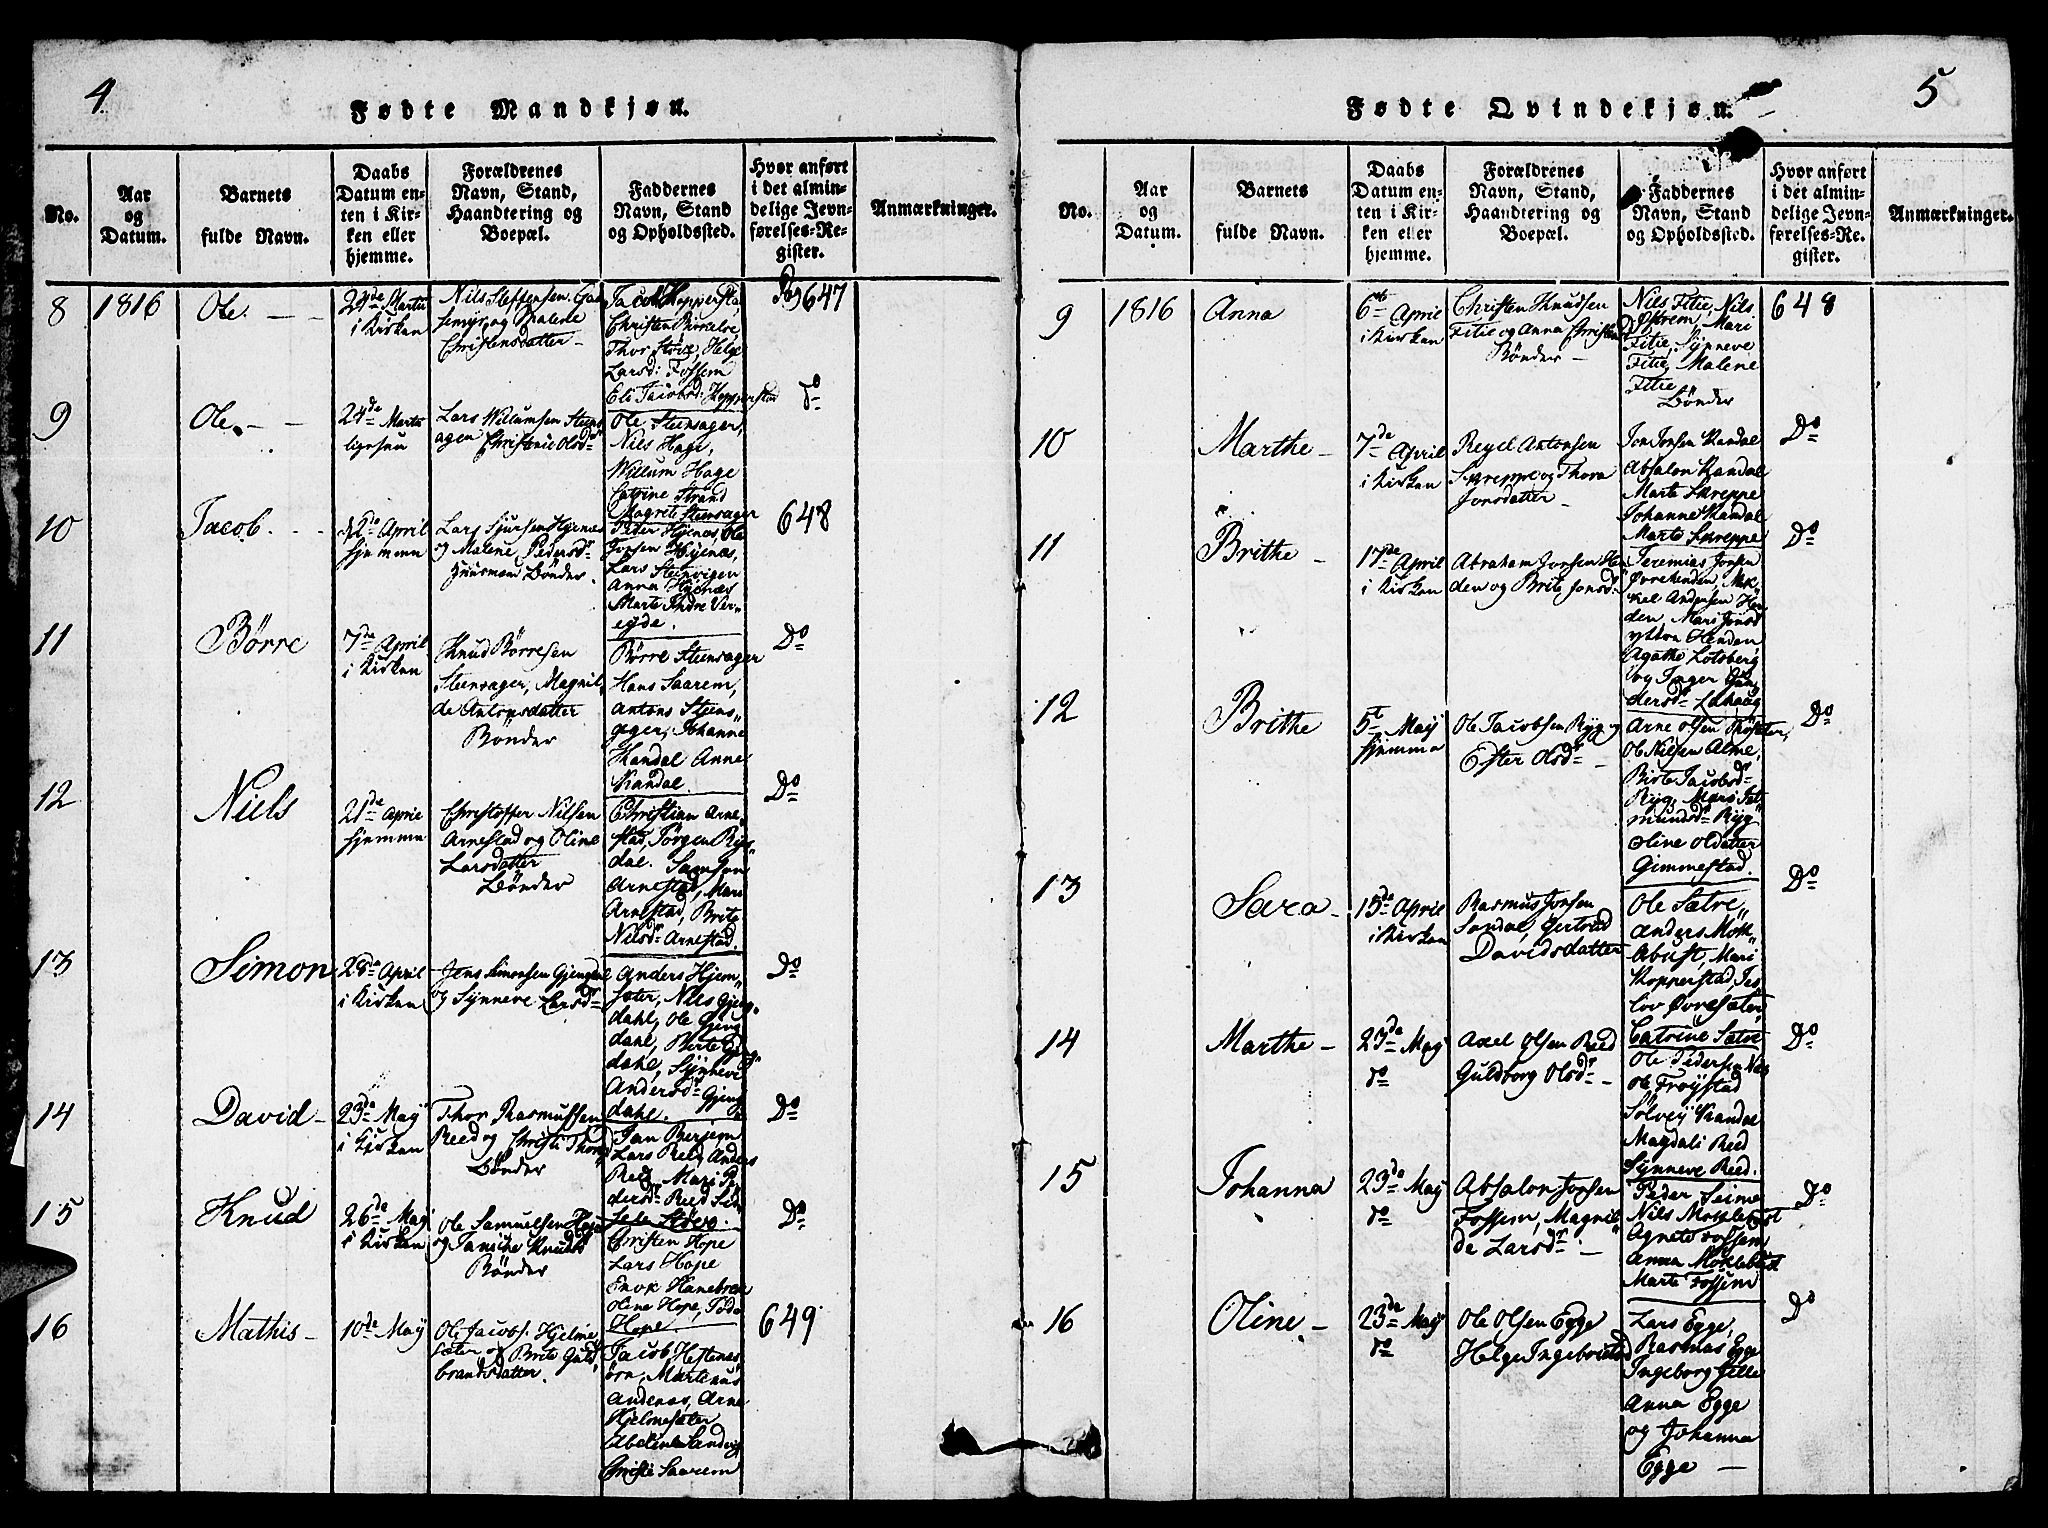 4
Fødte Mandkjøn.
No.
Aar og Datum.
Barnets fulde Navn.
Daabs Datum enten i Kirken eller hjemme.
Forældrenes Navn, Stand, Haandtering og Boepæl.
Faddernes Navn, Stand og Opholdssted.
Hvor anført i det almindelige Jevnførelses-Register.
Anmærkninger.
8
1816
Ole
24de Martii
i Kirken
Nils Steffensen
og Malene
Christensdatter
Christen
Thor Støve, Helge
Larsd: Fossem
Eli Jacobsd: Kopperstad
647
9
Ole
24de Martii
ligesaa
Lars Willumsen Steens
ager Christenie Olsdr
Ole Steensager,
Nils Hage,
Willum Hage
Catrine Strand
Magrete Steensager
Do
10
Jacob
April
hjemme
Lars Sjursen Hjenæs
og Malene Pedersdr
Huusmænd Bønder.
Peder Hjenæs, Ole
Jonsen Hjenæs,
Lars Steenvigen
Anna Hjenæs
Marte Indre Ver-
eyde.
648
11
Børre
7de April
i Kirken
Knud Børresen
Steensager, Magnil,
de Antonsdatter
Bønder
Børre Steensager
Hans Saarem,
Antons Steens,,
ager, Johanne
Kandal Anne
Kandal.
Do
12
Niels
21de April
hjemme
Christoffer Nilsen
Arnestad og Oline
Larsdatter
Bønder
Christian Arne,
stad, Jørgen Ryss,,
dal. Samson
Arnestad, Mari
Arnestad, Brite
Nilsdr Arnestad.
Do
13
Simon
28de April
i Kirken
Jens Simonsen Gjengdal
og Synneve Larsdr
Anders Hjem,,
sæter, Nils Gjeng,
dahl, Ole Gjeng
dahl, Birte
dahl, Synneve
Andersdr Gjeng
dahl.
Do
14
David
23de May
i Kirken
Thor Rasmussen
Reed og Christi Thomd
Bønder
Jan Berjem
Lars Reed Anders
Reed, Mari Pe
dersdr Reed
Støve.
Do
15
Knud
26de May
i Kirken
Ole Samuelsen Hope
og Jansike Knudsd
Bønder
Christen Hope
Lars Hope
Enok Hanebrek
Oline Hope,
Hope.
Do
16
Mathis
10de May
Ole Jacobs. Hjelme
sæter og Brite Guld,
brandsdatter.
Jacob Hestenæs
ørn, Martinus
Andenæs, Arne
Hjelmesæter
Abelone Sandvig
Christi Saarem
649
5
Fødte Qvindekjøn.
No.
Aar og Datum.
Barnets fulde Navn.
Daabs Datum enten i Kirken eller hjemme.
Forældrenes Navn, Stand, Haandtering og Boepæl.
Faddernes Navn, Stand og Opholdssted.
Hvor anført i det almindelige Jevnførelses-Register.
Anmærkninger.
9
1816
Anna
6te April
i Kirken
Christen Knudsen
Fitie og Anna Christend
Bønder
Nils Fitie, Nils
Østrem, Mari
Fitie, Synneve
Fitie, Malene
Fitie
Bønder
648
10
Marthe
7de April
i Kirken
Reyel Antonsen
Skreppe og Thora
Jonsdatter
Jon Jonsen Kandal
Absalon Kandal
Marte Skreppe
Johanne Kandal
Marte Skreppe
Do
11
Brithe
17de April
i Kirken
Abraham Jonsen Hen
den og Brite Jonsdr
Jeremias Jonsen
Øvrehenden, Mik,
kel Andersen Hen
den, Mari Jonsd
ytten Henden
Agathe Lotsberg
og Inger Gun
dersdr
Do
12
Brithe
5te May
hjemme
Ole Jacobsen Ryg og
Ester Olsdr
Arne Olsen
Ole Nilsen Alme,
Birte Jacobsdr
Ryg, Mari Set
mundsdr Ryg
Oline Oldatter
Gimmestad.
Do
13
Sara
15de April
i Kirken
Rasmus Jonsen
Sandal, Gertrud
Davidsdatter
Ole Sætre
Anders Møk,,
labust, Mari
Kopperstad, Jes,
lov Øvresæter,
Catrine Sætre
Do
14
Marthe
23de May
do
Axel Olsen Reed
Guldborg Olsdr
Ole Pedersen
Ole Frøystad
Sølvey Kandal
Magdali Reed
Synneve Reed.
Do
15
Johanna
23de May
do
Absalon Jonsen
Fossem, Magnil
de Larsdr
Peder Seime
Nils Møklebust
Agnete Fossem
Anna Møklebust
Marte Fossem
Do
16
Oline
23de May
do
Ole Olsen Egge
Helge Ingebrictsd
Lars Egge,
Rasmus Egge
Ingeborg Gille
Anna Egge
og Johanna
Egge
Do